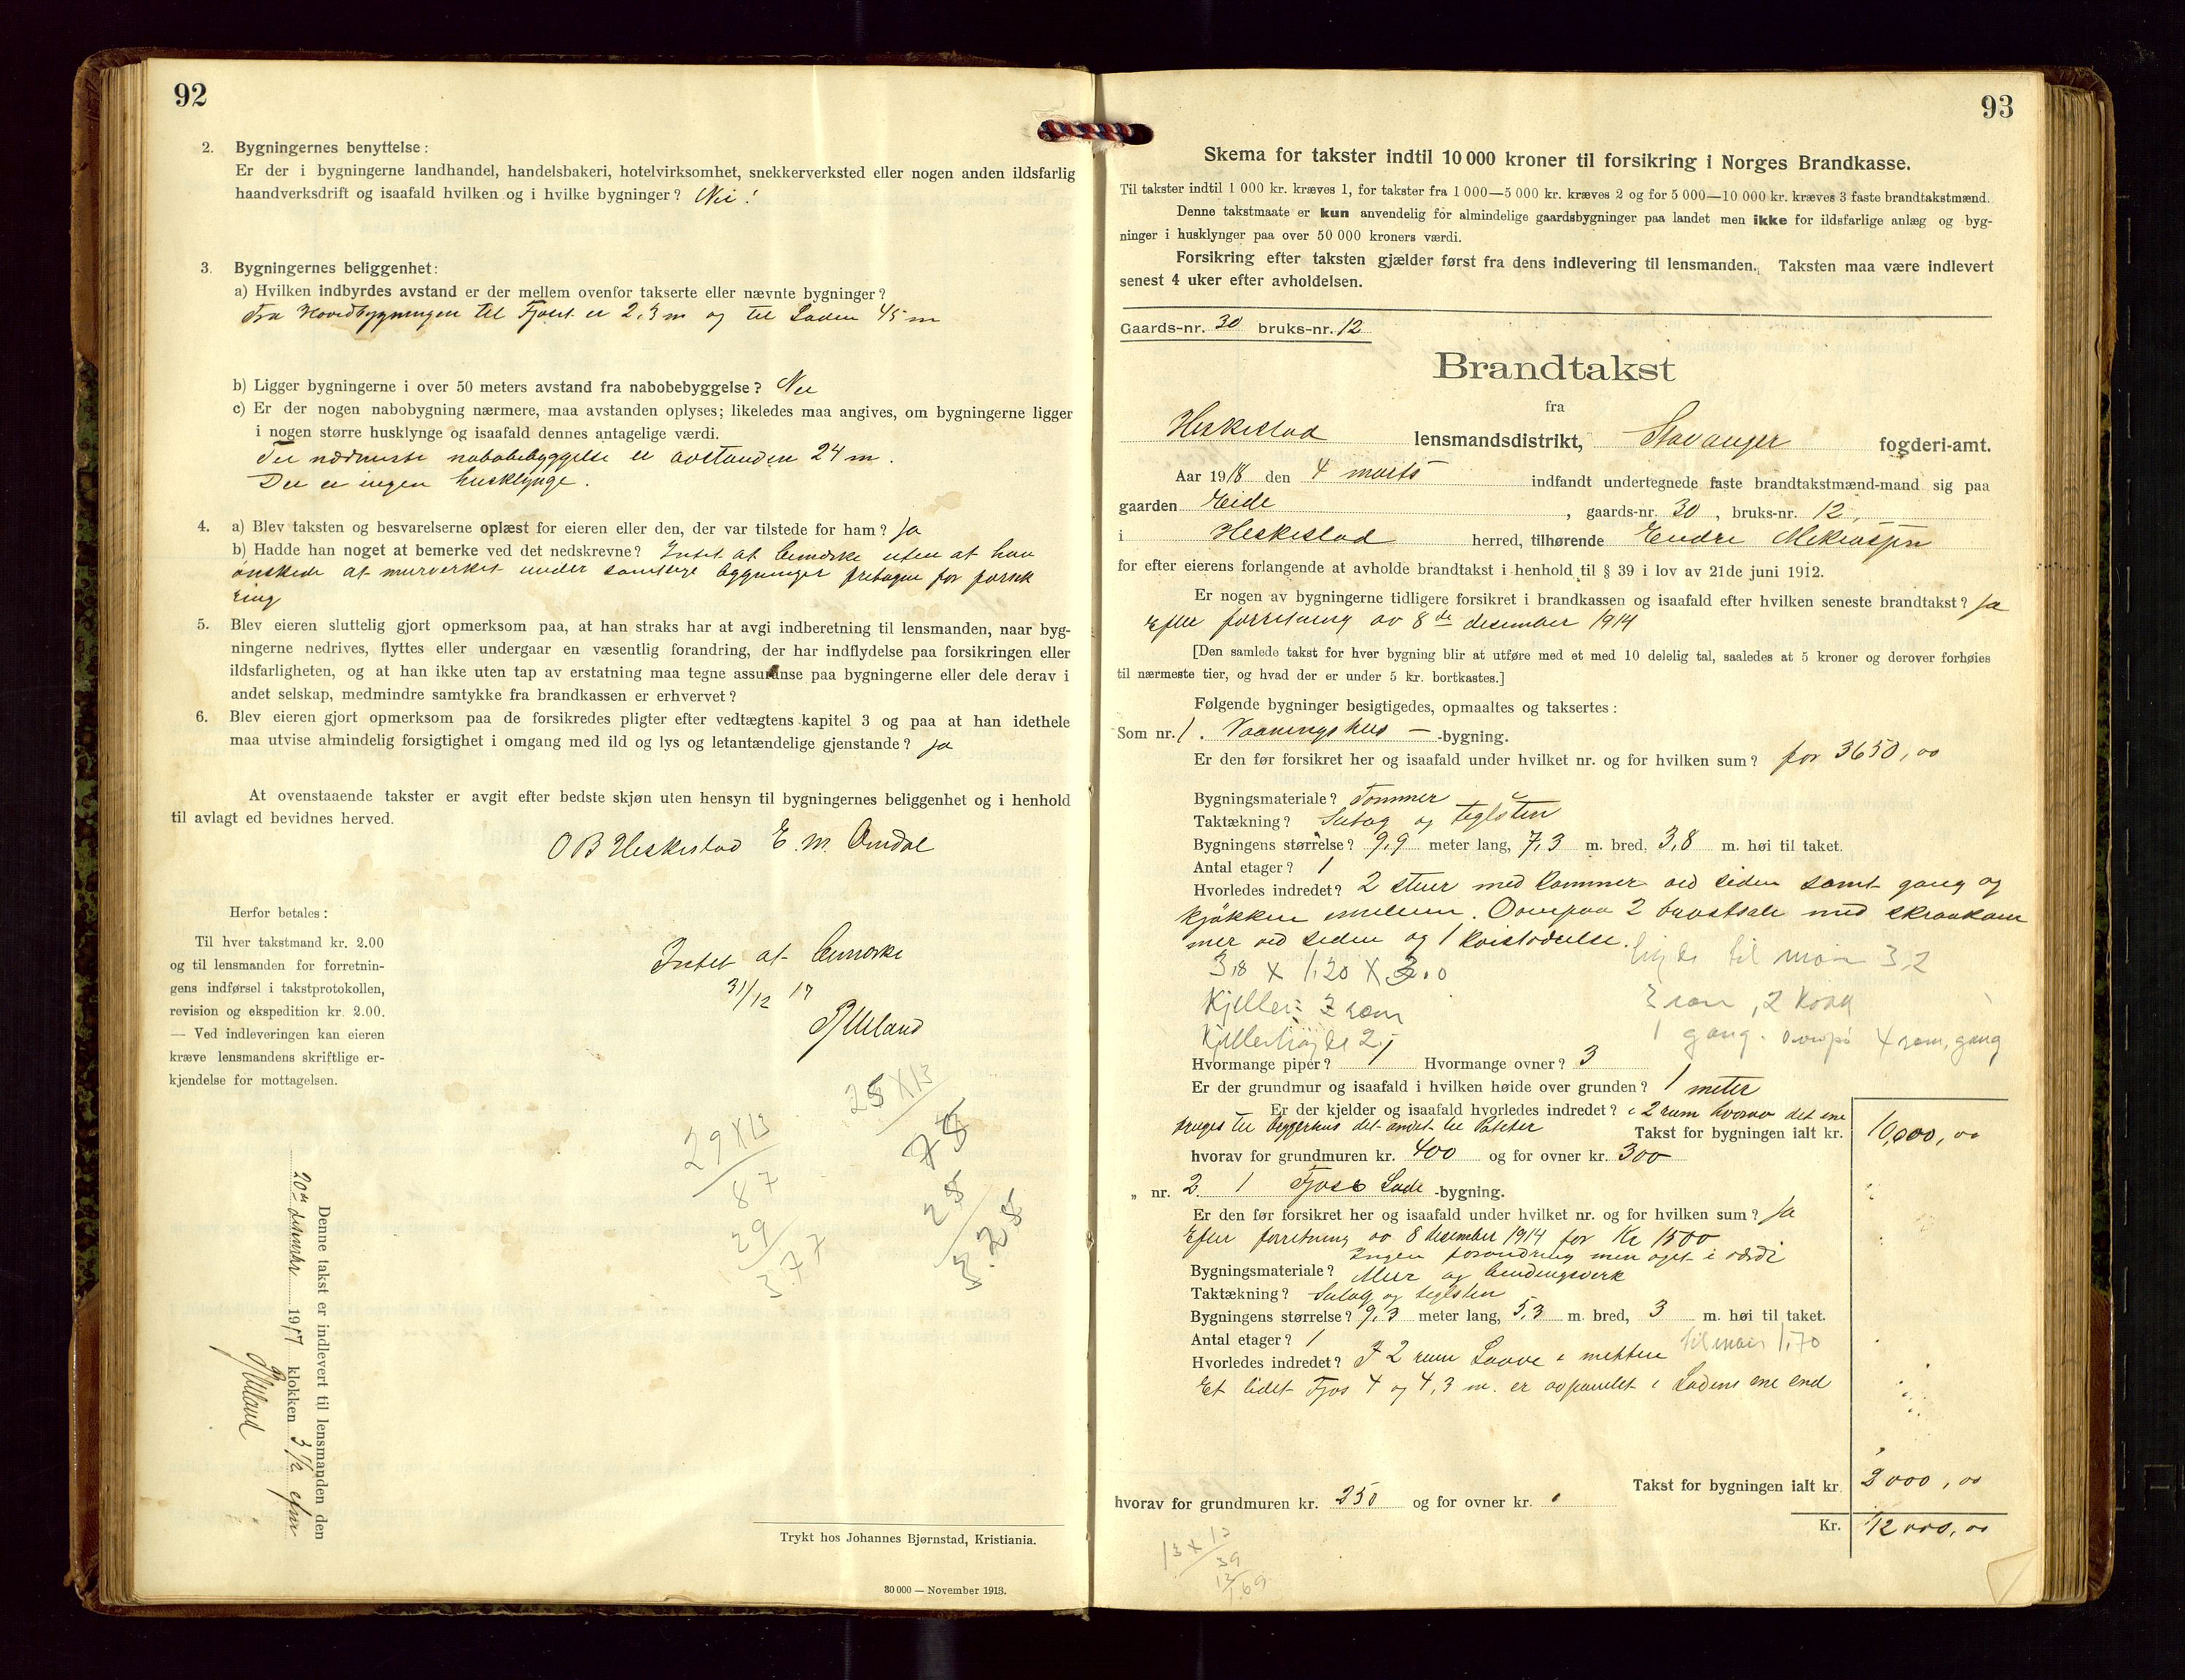 92
2. Bygningernes benyttelse:
Er der i bygningerne landhandel, handelsbakeri, hotelvirksomhet, snekkerverksted eller nogen anden ildsfarlig
haandverksdrift og isaafald hvilken og i hvilke bygninger? Nei!
3. Bygningernes beliggenhet:
a) Hvilken indbyrdes avstand er der mellem ovenfor takserte eller nævnte bygninger?
Fra Hovedbygningen til Fjøset er 2,3 m og til Laden 45 m
b) Ligger bygningerne i over 50 meters avstand fra nabobebyggelse? Nei
c) Er der nogen nabobygning nærmere, maa avstanden oplyses; likeledes maa angives, om bygningerne ligger
i nogen større husklynge og isaafald dennes antagelige værdi.
Til nærmeste nabobebyggelse er avstanden 24 m.
Der er ingen husklynge.
4. a) Blev taksten og besvarelserne oplæst for eieren eller den, der var tilstede for ham? Ja
b) Hadde han noget at bemerke ved det nedskrevne? Intet at bemærke uten at han
ønskede at murverket under samtlige bygninger fretages for forsik
ring
5. Blev eieren sluttelig gjort opmerksom paa, at han straks har at avgi indberetning til lensmanden, naar byg-
ningerne nedrives, flyttes eller undergaar en væsentlig forandring, der har indflydelse paa forsikringen eller
ildsfarligheten, og at han ikke uten tap av erstatning maa tegne assuranse paa bygningerne eller dele derav i
andet selskap, medmindre samtykke fra brandkassen er erhvervet?
6. Blev eieren gjort opmerksom paa de forsikredes pligter efter vedtægtens kapitel 3 og paa at han idethele
maa utvise almindelig forsigtighet i omgang med ild og lys og letantændelige gjenstande? Ja
At ovenstaaende takster er avgit efter bedste skjøn uten hensyn til bygningernes beliggenhet og i henhold
til avlagt ed bevidnes herved.
O B Heskestad E. M. Omdal
Herfor betales:
Til hver takstmand kr. 2.00
og til lensmanden for forretnin-
gens indførsel i takstprotokollen,
revision og ekspedition kr. 2.00.
— Ved indleveringen kan eieren
kræve lensmandens skriftlige er-
kjendelse for mottagelsen.
Intet at bemerke
31/12 17
28 X 13
29 X 13
87
29
377
Denne takst er indlevert til lensmanden den
20de desember 1917 klokken 3 1/2 efm
Trykt hos Johannes Bjørnstad, Kristiania.
30 000 — November 1913.
93
Skema for takster indtil 10 000 kroner til forsikring i Norges Brandkasse.
Til takster indtil 1 000 kr. kræves 1, for takster fra 1 000—5 000 kr. kræves 2 og for 5 000—10 000 kr. kræves 3 faste brandtakstmænd.
Denne takstmaate er kun anvendelig for almindelige gaardsbygninger paa landet men ikke for ildsfarlige anlæg og byg-
ninger i husklynger paa over 50 000 kroners værdi.
Forsikring efter taksten gjælder først fra dens indlevering til lensmanden. Taksten maa være indlevert
senest 4 uker efter avholdelsen.
Gaards-nr. 30 bruks-nr. 12
Brandtakst
fra
Heskestad lensmandsdistrikt, Stavanger fogderi-amt.
Aar 1918 den 4 marts indfandt undertegnede faste brandtakstmænd-mand sig paa
gaarden Eide, gaards-nr. 30, bruks-nr. 12,
i Heskestad herred, tilhørende Endre
for efter eierens forlangende at avholde brandtakst i henhold til § 39 i lov av 21de juni 1912.
Er nogen av bygningerne tidligere forsikret i brandkassen og isaafald efter hvilken seneste brandtakst? Ja
Efter forretning av 8de desember 1914
[Den samlede takst for hver bygning blir at utføre med et med 10 delelig tal, saaledes at 5 kroner og derover forhøies
til nærmeste tier, og hvad der er under 5 kr. bortkastes.]
Følgende bygninger besigtigedes, opmaaltes og taksertes:
Som nr. 1. Vaaningshus — -bygning.
Er den før forsikret her og isaafald under hvilket nr. og for hvilken sum? for 3650,00
Bygningsmateriale? Tømmer
Taktækning? Sutag og teglsten
Bygningens størrelse? 9,9 meter lang, 7,3 m. bred, 3,8 m. høi til taket.
Antal etager? 1
Hvorledes indredet? 2 stuer med kammer ved siden samt gang og
kjøkken imellem. Ovenpaa 2 brøstsale med skraakam
mer ved siden og 1 kvistværelse.
høide til møn 3,2
3,8 X 1,20 X 2.0
Kjeller: 2 rom
2 rom, 2 kove
Kjellerhøyde 2,-
1 gang. ovenpå 4 rom, gang
Hvormange piper? 1 Hvormange ovner? 3
Er der grundmur og isaafald i hvilken høide over grunden? 1 meter
Er der kjelder og isaafald hvorledes indredet? i 2 rum hvorav det ene
bruges til bryggerhus det andet til Poteter
Takst for bygningen ialt kr. 10,000,00
hvorav for grundmuren kr. 400 og for ovner kr. 300
„ nr. 2. 1 Fjos & Lade -bygning.
Er den før forsikret her og isaafald under hvilket nr. og for hvilken sum? Ja
Efter forretning av 8 desember 1914 for Kr 1500
Ingen forandring men øget i værdi
Bygningsmateriale? Mur og bindingsverk
Taktækning? Sutag og teglsten
Bygningens størrelse? 9,3 meter lang, 5,3 m. bred, 3 m. høi til taket.
Antal etager? 1
til møn 1,70
Hvorledes indredet? I 2 rum Laave i midten
Et lidet Fjos 4 og 4,3 m. er avpanelet i Ladens ene end
Takst for bygningen ialt kr. 2000,00
hvorav for grundmuren kr. 250 og for ovner kr.
Kr. 12000,00
13 x 13
39
13
1.69